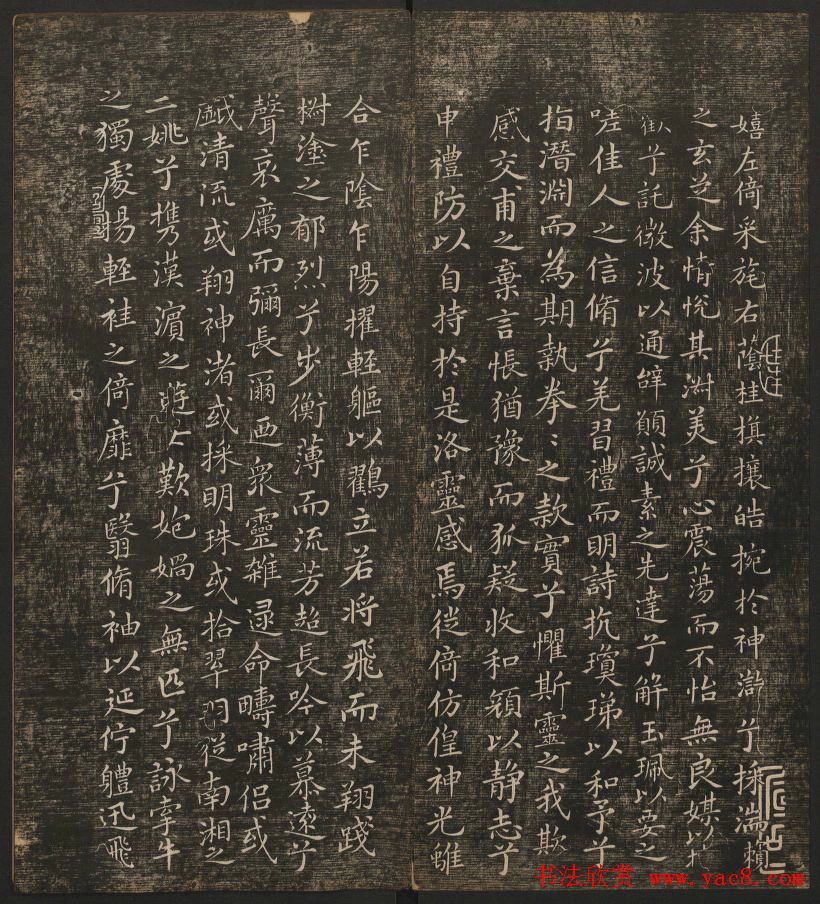 嬉左倚采旄右蔭桂旗攘皓捥於神滸兮採湍瀨
之玄芝余情悅其淑美兮心震蕩而不怡無良媒以接
歡兮託微波以通辭願誠素之先達兮解玉珮以要之
嗟佳人之信脩兮羌習禮而明詩抗瓊珶以和予兮
指潛淵而為期執拳〻之款實兮懼斯靈之我欺
感交甫之棄言悵猶豫而狐疑收和顏以静志兮
申禮防以自持於是洛靈感焉徙倚仿偟神光離
合乍陰乍陽擢輕軀以鸖立若將飛而未翔踐
椒塗之郁烈兮步衡薄而流芳超長吟以慕遠兮
聲哀厲而彌長爾迺衆靈雜遝命疇嘯侶或
戲清流或翔神渚或採明珠或拾翠羽從南湘之
二姚兮攜漢濱之遊女歎炮媧之無匹兮詠牽牛
之獨處揚輕袿之倚靡兮翳脩袖以延佇軆迅飛
书法欣赏 www.yac8.com